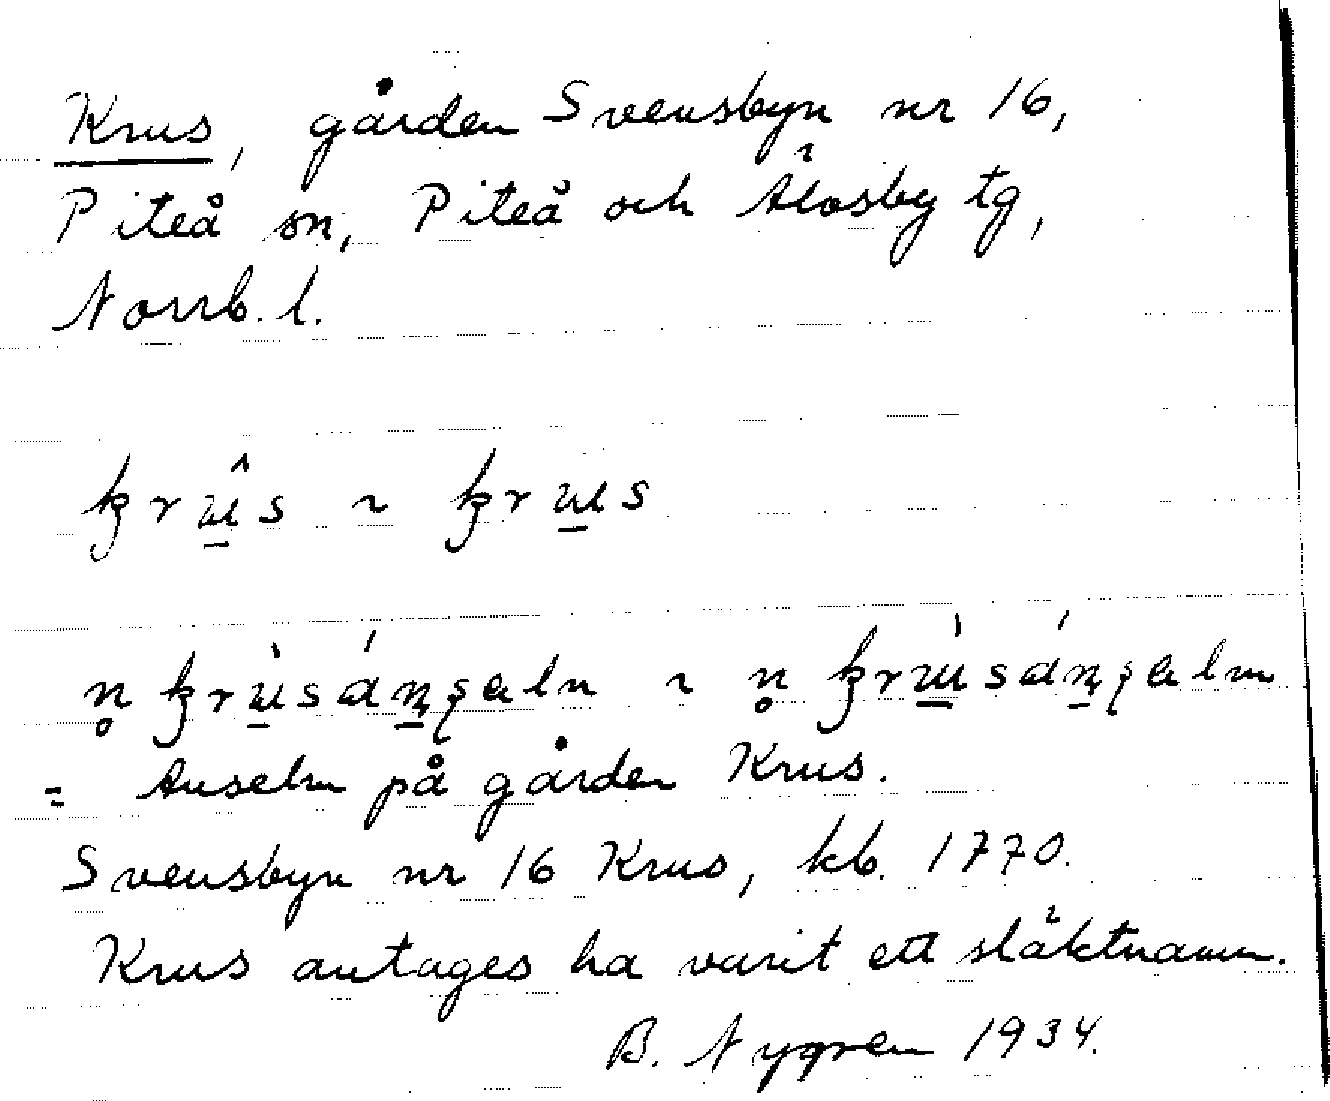 Krus, gården Svensbyn nr 16,
Piteå sn, Piteå och Älvsby tg,
Norrb. l.
krûs ~ krus
n̥ krùsánselm ~ n̥ krùsánselm
= Anselm på gården Krus.
Svensbyn nr 16 Krus, kb. 1770.
Krus antages ha varit ett släktnamn.
B. Nygren 1934.